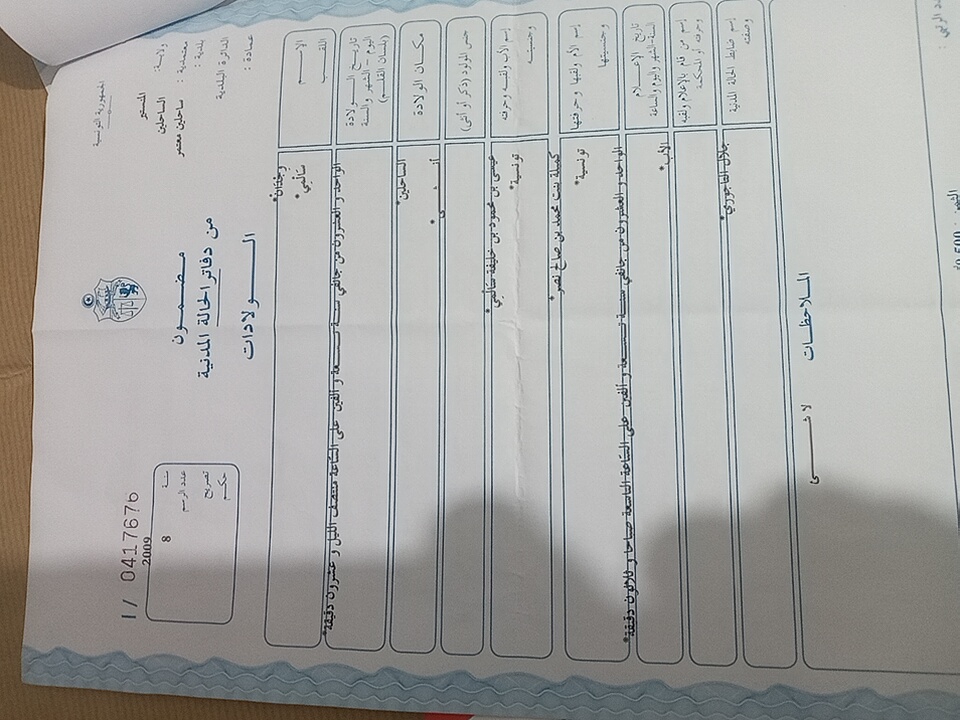 الجمهورية التونسية
ولاية : المنستير
معتمدية : الساحلين
بلدية : ساحلين معتمر
الدائرة البلدية
عمادة :
مضمون
من دفاتر الحالة المدنية
الولادات
I / 0417676
2009
سنة
8
عدد الرسم
تصريح
حكم
الإسم
اللقب
*وجدان*
سالمي*
تاريخ الولادة
اليوم - الشهر والسنة
(بلسان القلم)
الواحد و العشرون من جانفي سنة تسعة و ألفين على الساعة منتصف الليل و عشرون دقيقة*
مكان الولادة
الساحلين*
جنس المولود (ذكر أو أنثى)
أنثى*
إسم الأب ولقبه وحرفته
وجنسيته
عيسى بن محمود بن خليفة سالمي*
تونسية*
إسم الأم ولقبها وحرفتها
وجنسيتها
كميلة بنت محمد بن صالح نصر*
تونسية*
تاريخ الإعلام
السنة-الشهر واليوم والساعة
الواحد و العشرون من جانفي سنة تسعة و ألفين على الساعة التاسعة صباحا و ثلاثون دقيقة*
إسم من قام بالإعلام ولقبه
وحرفته أو المحكمة
الأب*
إسم ضابط الحالة المدنية
وصفته
جلال التاجوري*
الملاحظات
لا شيء